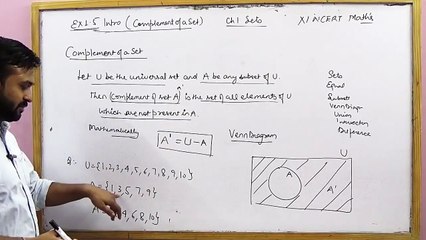 Ex 1.5 Intro (Complement of a Set) Ch 1 Sets XI NCERT Maths
Complement of a Set
Let U be the universal set and A be any subset of U.
Then complement of set A is the set of all elements of U
which are not present in A.
Mathematically
A' = U - A
Venn Diagram
U
A
A'
U = {1, 2, 3, 4, 5, 6, 7, 8, 9, 10}
= {1, 3, 5, 7, 9}
4, 6, 8, 10}
Sets
Equal
Subsets
Venn Diagr
Union
Intersection
Difference